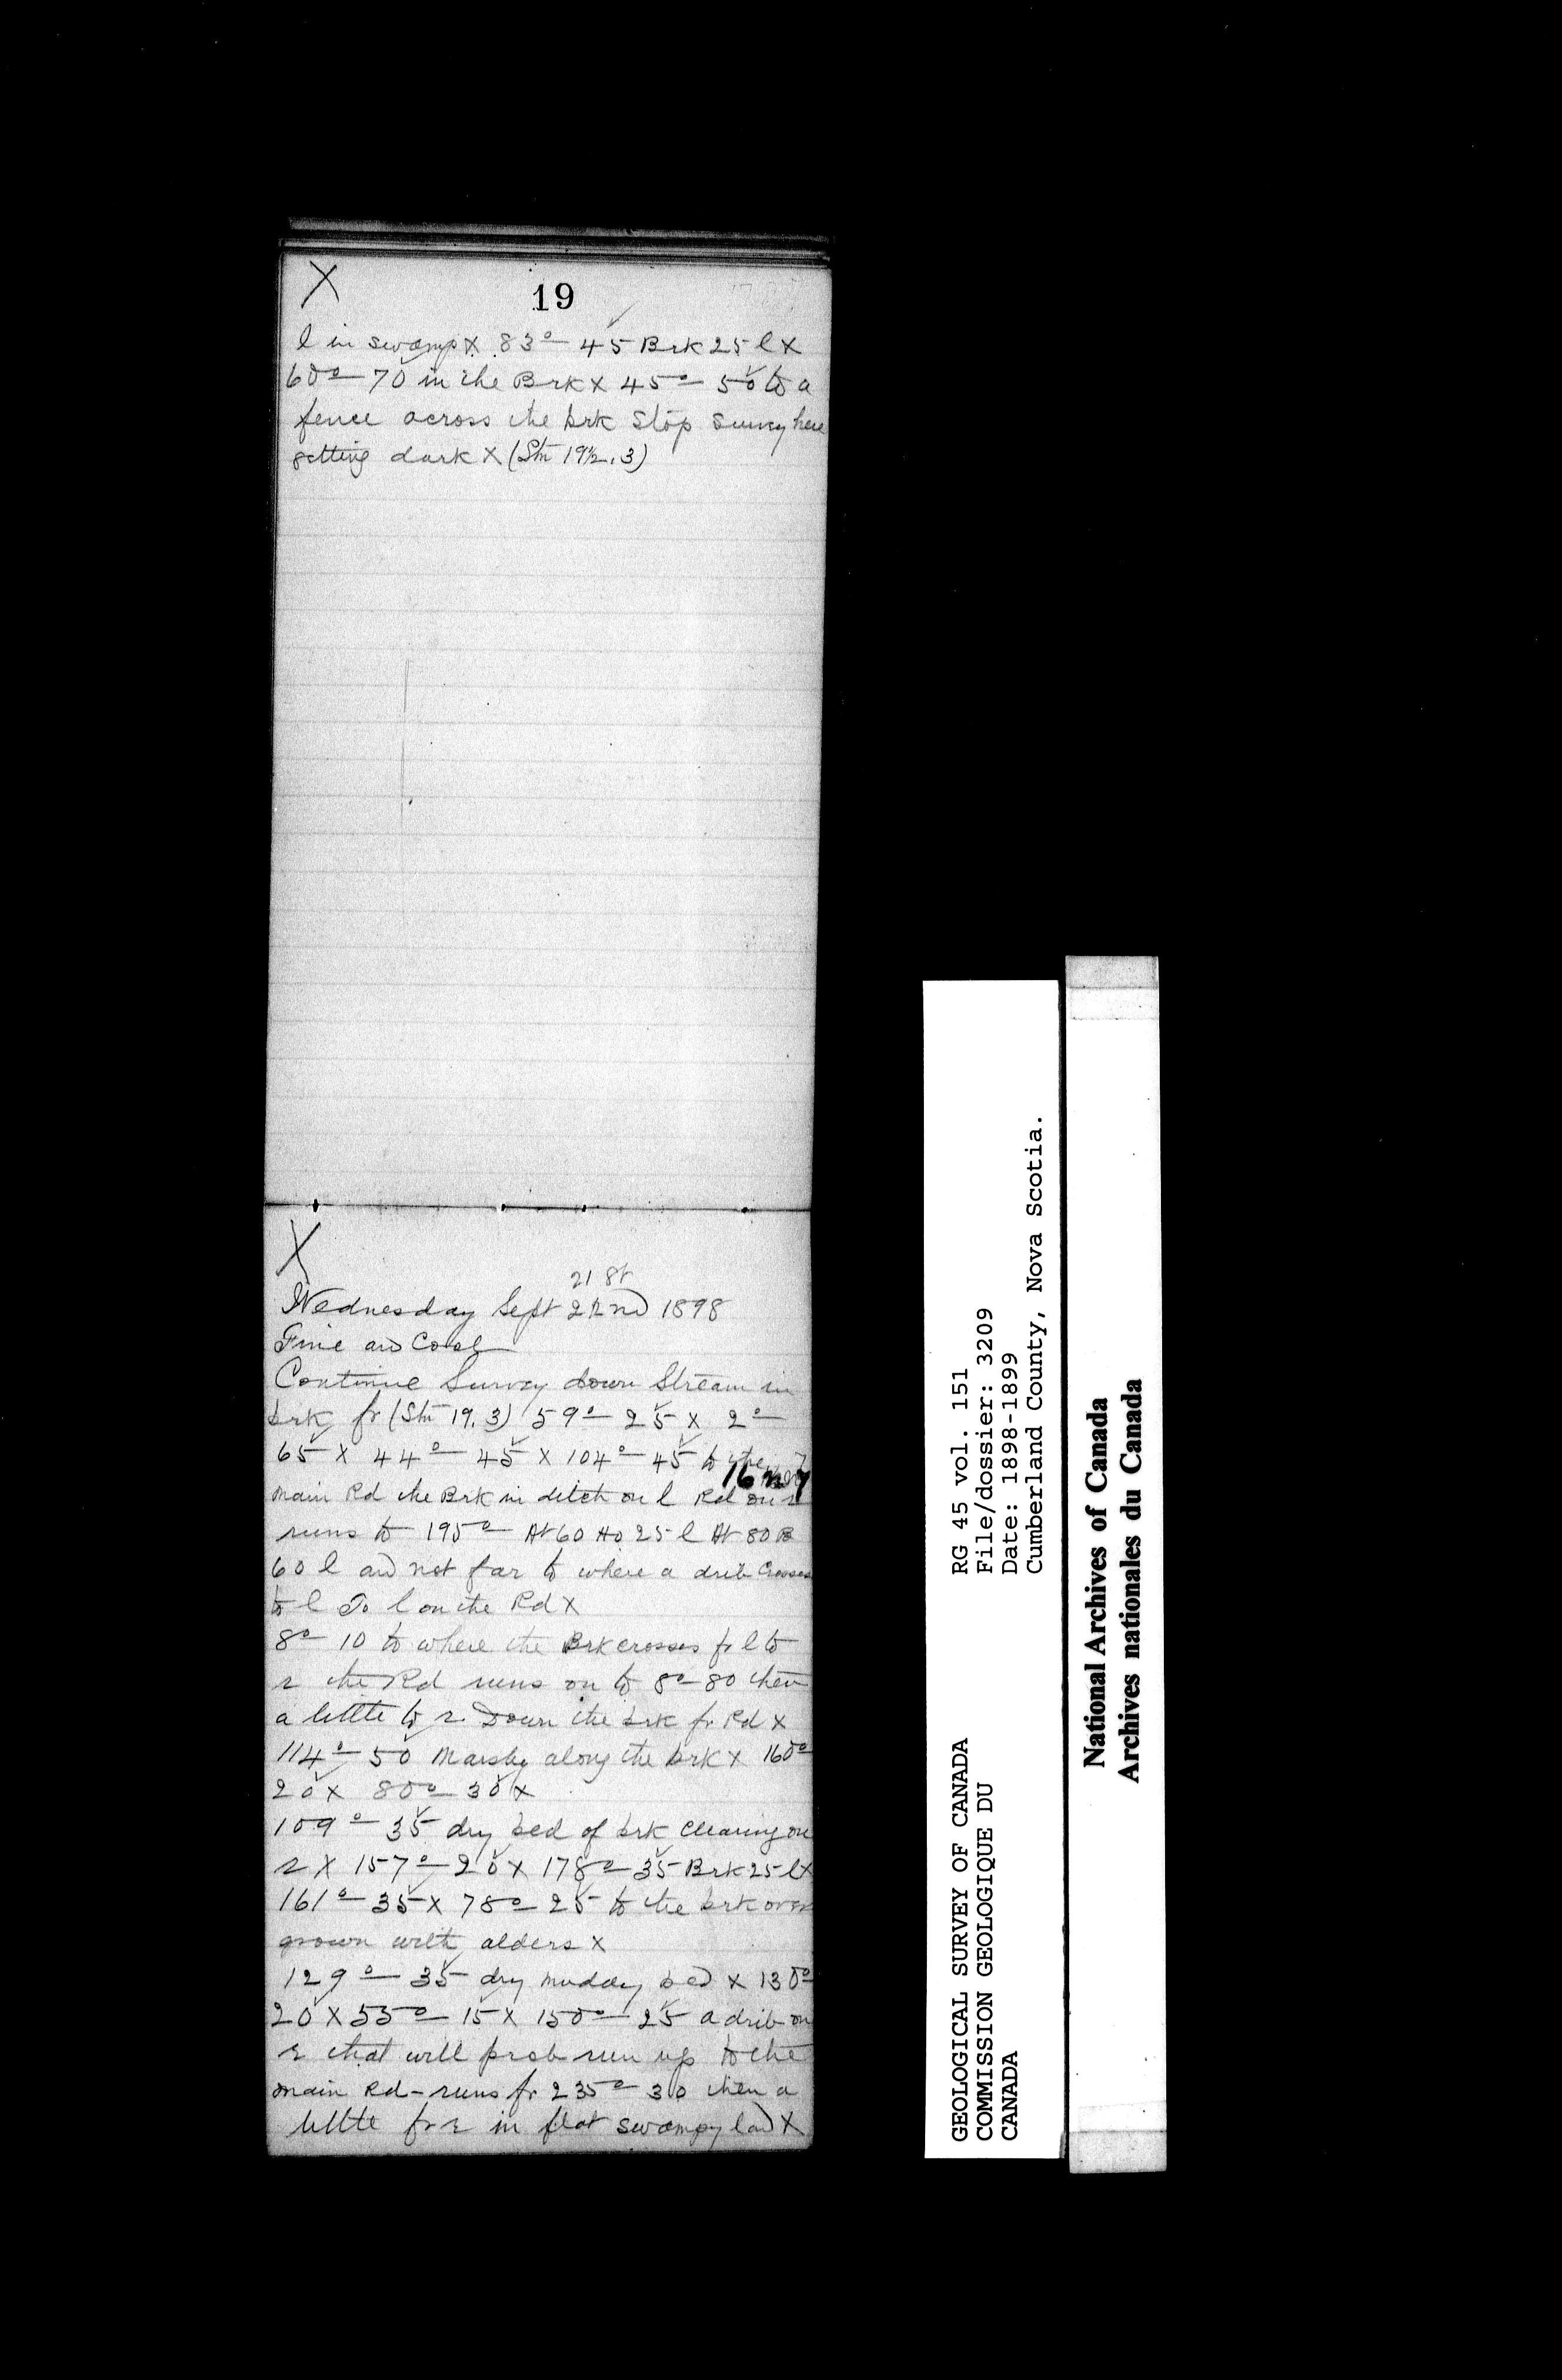 X
19
l in swamp X 83° — 45 Brk 25 l X
60° — 70 in the Brk X 45° — 50 to a
fence across the brk Stop Survey here
getting dark X (Stn 19½.3)
X
21 St
Wednesday Sept 22nd 1898
Fine and Cool
Continue Survey down Stream in
brk fr (Stn 19.3) 59° — 25 X 2° —
65 X 44° — 45 X 104° — 45 to the
16
main Rd the Brk in ditch on l Rd on r
runs to 195° — At 60 Ho 25 l At 80 B
60 l and not far to where a drib Crosses
to l To l on the Rd X
8° — 10 to where the Brk crosses fr l to
r the Rd runs on to 8° — 80 then
a little to r Down the brk fr Rd X
114° — 50 Marshy along the brk X 160°
20 X 80° — 30 X
109° — 35 dry bed of brk Clearing on
r X 157° — 20 X 178° — 35 Brk 25 l X
161° — 35 X 78° — 25 to the brk over
grown with alders X
129° — 35 dry muddy bed X 130°
20 X 55° — 15 X 150° — 25 a drib on
r that will prob run up to the
main Rd — runs fr 235° — 30 then a
little fr r in flat swampy land X
GEOLOGICAL SURVEY OF CANADA
COMMISSION GEOLOGIQUE DU
CANADA
RG 45 vol. 151
File/dossier: 3209
Date: 1898-1899
Cumberland County, Nova Scotia.
National Archives of Canada
Archives nationales du Canada